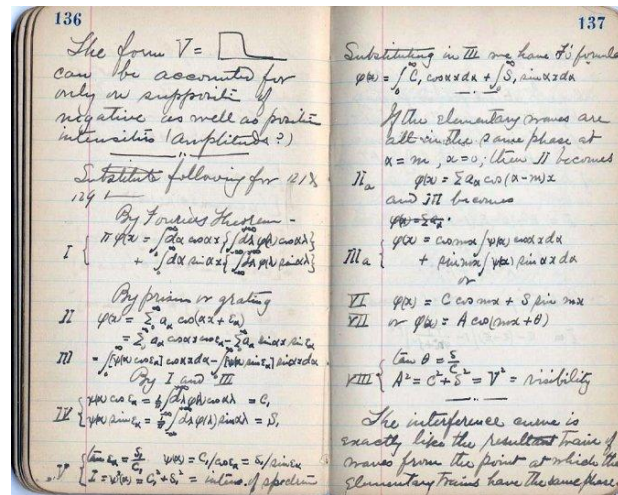 136
The form V =
can be accounted for
only on supposition of
negative as well as positive
intensities (amplitudes?)
Substitute following for 128 &
129
By Fouriers Theorem —
I { π φ(x) = ∫dα cosαx {∫dλ φ(λ) cosαλ}
+ ∫dα sinαx {∫dλ φ(λ) sinαλ}
By prism or grating
II φ(x) = Σ aα cos(αx + εα)
= Σ aα cosαx cosεα − Σ aα sinαx sin εα
III = ∫[ψ(α) cosεα] cosαx dα − ∫[ψ(α) sinεα] sinαx dα
By I and III
IV { ψ(α) cos εα = ∫dλ φ(λ) cosαλ = C₁
ψ(α) sin εα = ∫dλ φ(λ) sinαλ = S₁
V { tan εα = S₁/C₁ ψ(α) = C₁/cosεα = S₁/sinεα
I = ψ²(α) = C₁² + S₁² = intens. of spectrum
137
Substituting in III we have F's formula
φ(x) = ∫ C₁ cosαx dα + ∫ S₁ sinαx dα
If the elementary waves are
all in the same phase at
x = m, α = 0; then II becomes
IIa φ(x) = Σ aα cos (x − m)α
and III becomes
φ(x) = Σ aα
IIIa { φ(x) = cosmx ∫ψ(α) cosαx dα
+ sin mx ∫ψ(α) sin αx dα
or
VI φ(x) = C cos mx + S sin mx
VII or φ(x) = A cos (mx + θ)
VIII { tan θ = S/C
A² = C² + S² = V² = visibility
The interference curve is
exactly like the resultant train of
waves from the point at which the
elementary trains have the same phase